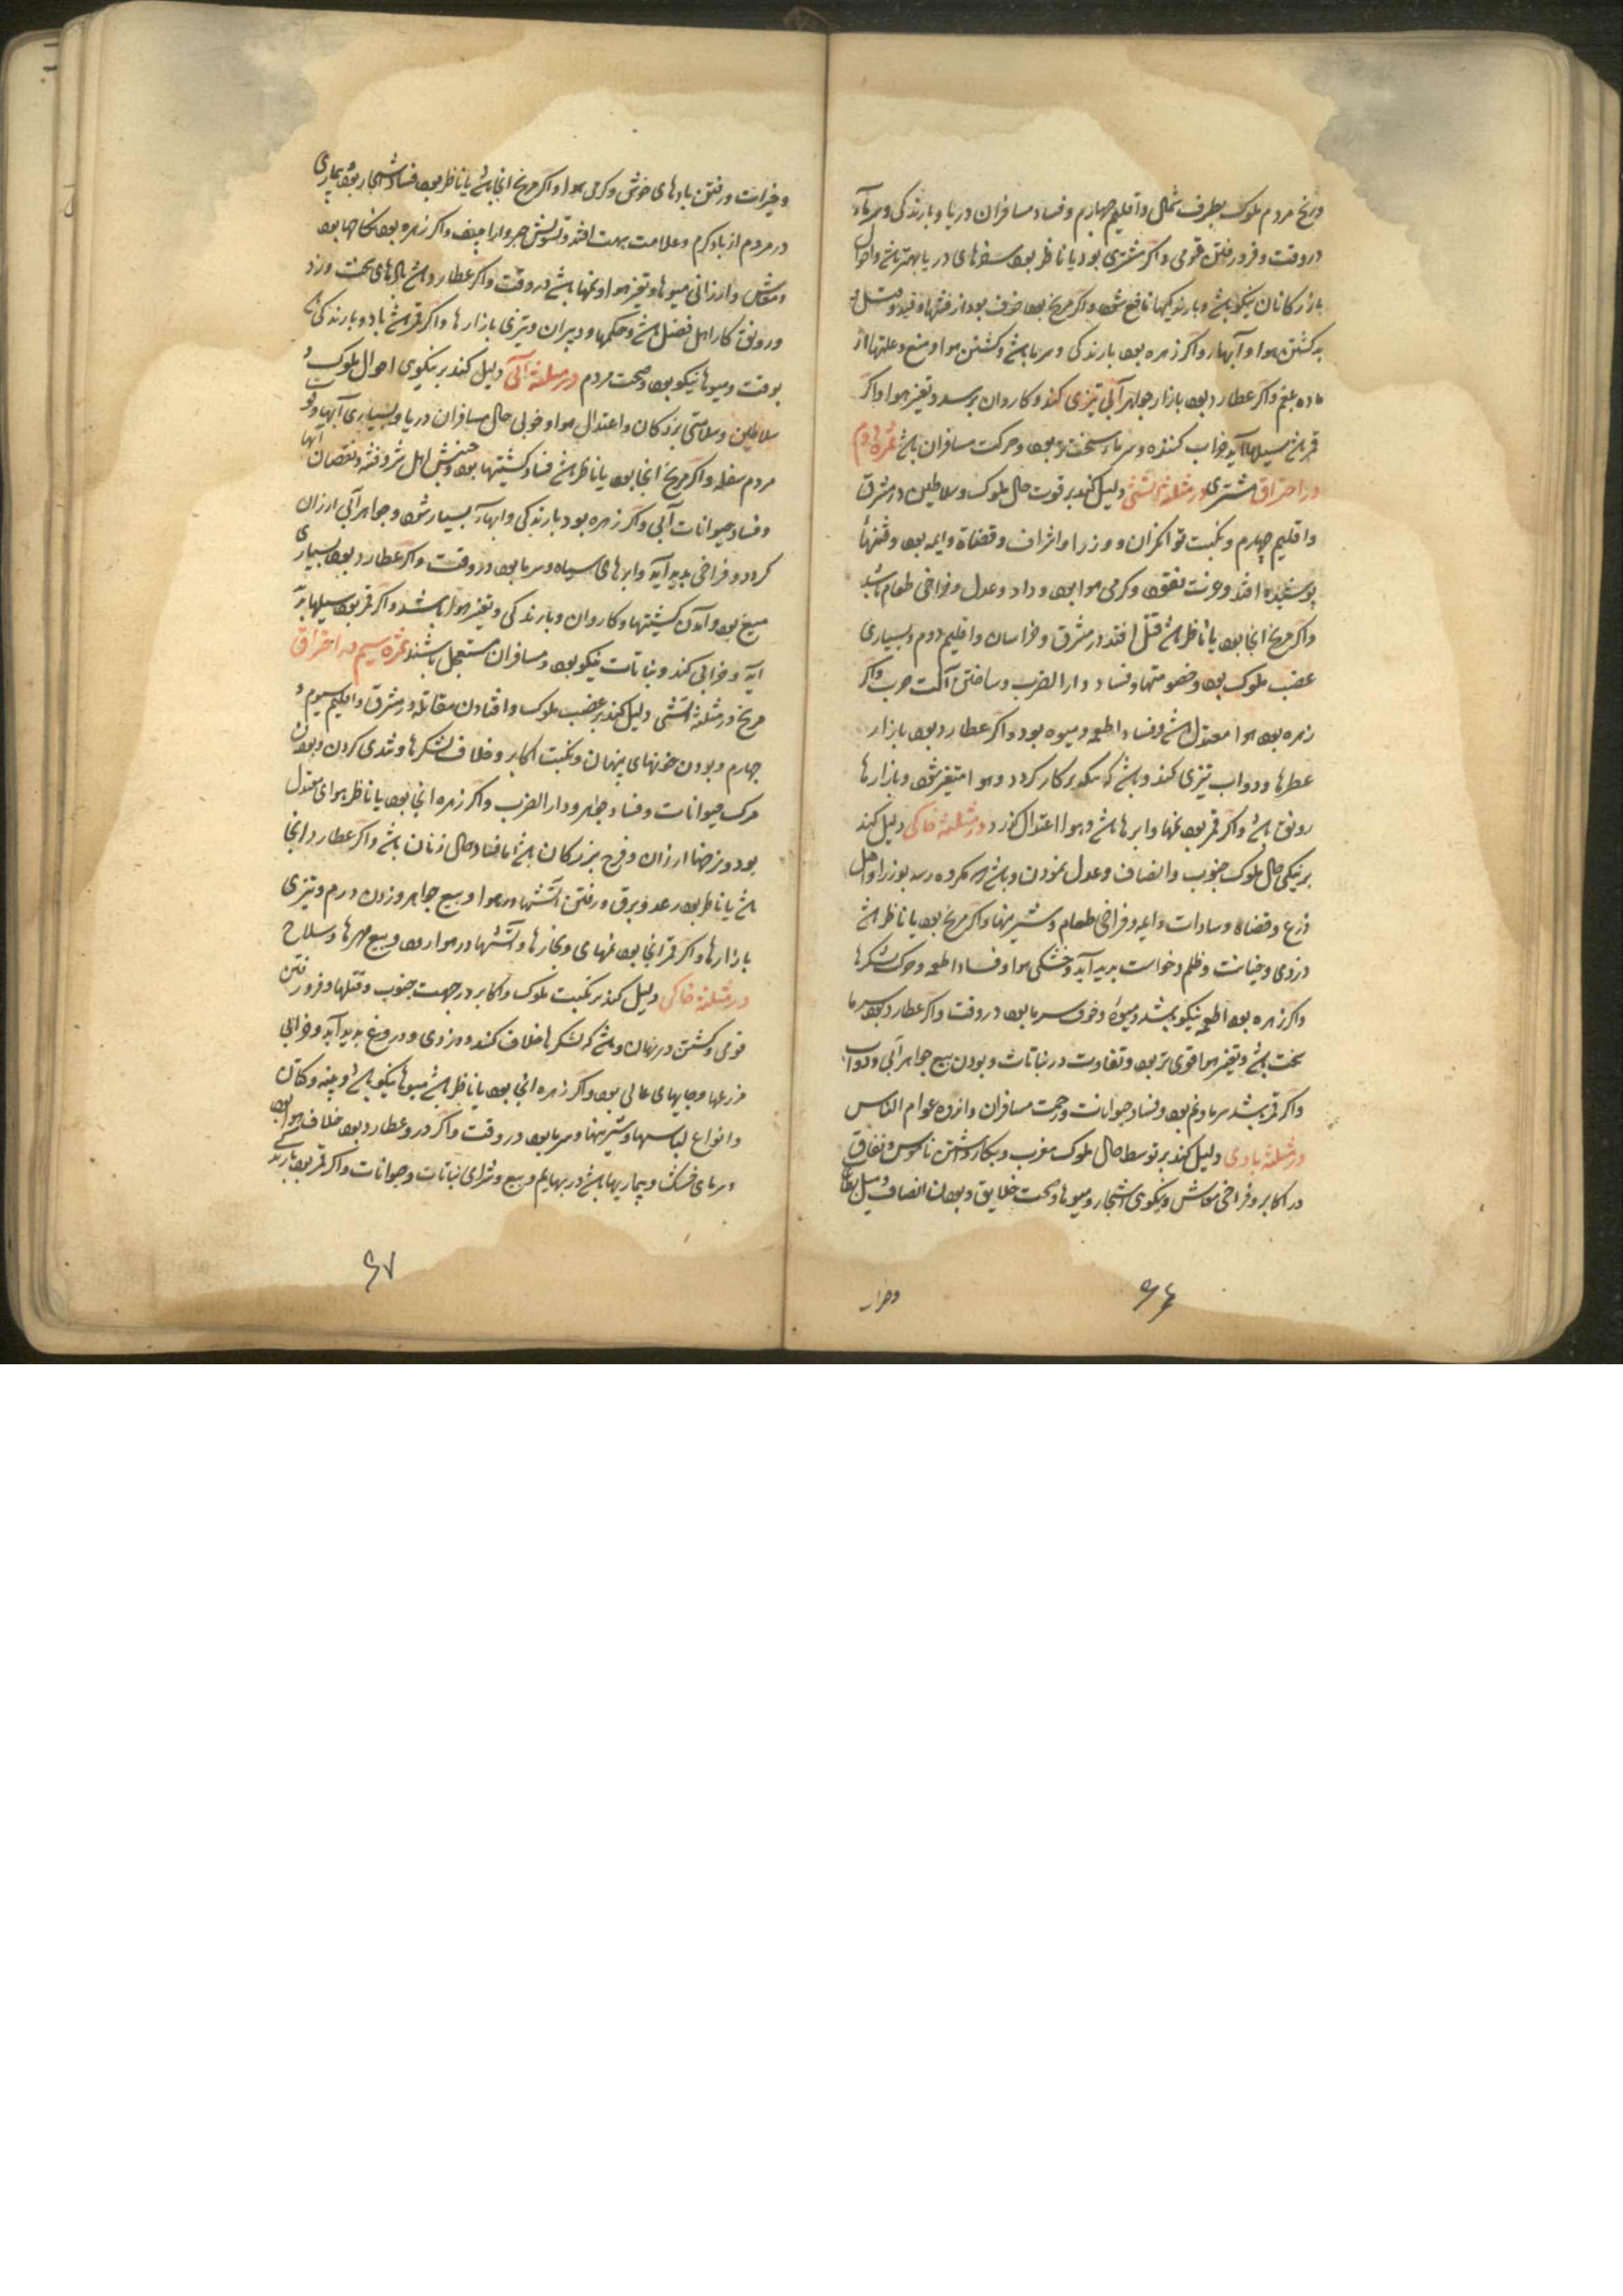 ورنج مردم ملوک بطرف شمال واقلیم چهارم وفساد مسافران دریا وبارندکی وسرما
دروقت وفرورفتن قومی واکر مشتری بود یا ناظر بود سفرهای دریا بهتر باشد واحوال
بازرکانان نیکو باشد وبارندکیها نافع شود واکر مریخ بود خوف بود از فتنها وقید وقتل و
بد کشتن هوا وآبها واکر زهره بود بارندکی وسرما باشد وکشتن هوا ومنع وعلتها از
ماده بلغم واکر عطارد بود بازار جواهر آبی تیزی کند وکاروان برسد وتغیر هوا واکر
قمر باشد سیلها آید خراب کننده وسرما سخت تر بود وحرکت مسافران باشد ثمره دوم
در احتراق مشتری در مثلثه آتشی دلیل کند بر قوت حال ملوک وسلاطین در مشرق
واقلیم چهارم ونکبت توانکران ووزرا واشراف وقضاة وایمه بود وفتنها
پوشیده افتد وعزت نفقه وکرمی هوا بود وداد وعدل وفراخی طعام باشد
واکر مریخ انجا بود یا ناظر باشد قتل افتد در مشرق وخراسان واقلیم دوم وبسیاری
غضب ملوک بود وخصومتها وفساد دار الضرب وساختن آلت حرب واکر
زهره بود هوا معتدل باشد وفساد اطعمه ومیوه بود واکر عطارد بود بازار
عطرها ودواب تیزی کند وباشد که نیکو بر کار کردد وهوا متغیر شود وبازارها
رونق باشد واکر قمر بود نمها وابرها باشد وهوا اعتدال کذرد در مثلثه خاکی دلیل کند
بر نیکی حال ملوک جنوب وانصاف وعدل نمودن وباشد که مکروه رسد بوزرا واهل
ورع وقضاة وسادات وایمه وفراخی طعام وشیرینها واکر مریخ بود یا ناظر باشد
دزدی وخیانت وظلم وخواست پدید آید وخشکی هوا وفساد اطعمه وحرکت لشکرها
واکر زهره بود اطعمه نیکو باشد ومیوه وخوف سرما بود در وقت واکر عطارد بود سرما
سخت باشد وتغیر هوا قوی تر بود وتفاوت در نباتات وبودن بیع جواهر آبی ودواب
واکر قمر باشد سرما ونم بود وفساد حیوانات وزحمت مسافران واندوه عوام الناس
در مثلثه بادی دلیل کند بر توسط حال ملوک مغرب وبکار داشتن ناموس ونفاق
در اکابر وفراخی معاش ونیکوی اشجار ومیوها وصحت خلایق وبودن انصاف ومیل بطاعات
وخیرات
۶۶
وخیرات ورفتن بادهای خوش وکرمی هوا واکر مریخ انجا باشد یا ناظر بود فساد اشجار بود وبیماری
در مردم از باد کرم وعلامت بهت افتد وتشویش واراجیف واکر زهره بود نکاحها بود
ومعاش وارزانی میوها وتغیر هوا ونمها باشد در وقت واکر عطارد باشد بادهای سخت وزد
ورونق کار اهل فضل باشد وحکما ودبیران وتیزی بازارها واکر قمر باشد باد وبارندکی
بوقت ومیوها نیکو بود وصحت مردم در مثلثه آبی دلیل کند بر نیکویی احوال ملوک و
سلاطین وسلامتی بزرکان واعتدال هوا وخوبی حال مسافران دریا وبسیاری آبها
مردم سفله واکر مریخ انجا بود یا ناظر باشد فساد کشتیها بود وجنبش اهل شر وفتنه ونقصان آبها
وفساد حیوانات آبی واکر زهره بود بارندکی وابها بسیار شود وجواهر آبی ارزان
کردد وفراخی پدید آید وابرهای سیاه وسرما بود در وقت واکر عطارد بود بسیاری
میغ بود وآمدن کشتیها وکاروان وبارندکی وتغیر هوا باشد واکر قمر بود سیلها بر
آید وخرابی کند ونباتات نیکو بود ومسافران مستعجل باشند ثمره سیم در احتراق
مریخ در مثلثه آتشی دلیل کند بر غضب ملوک وافتادن مقاتله در مشرق واقلیم سیوم و
چهارم وبودن خونهای پنهان ونکبت اکابر وخلاف لشکرها وتندی کردن وبودن
مرک حیوانات وفساد جواهر ودار الضرب واکر زهره انجا بود یا ناظر هوای معتدل
بود ونرخها ارزان وفرح بزرکان باشد اما فساد حال زنان باشد واکر عطارد انجا
باشد یا ناظر بود رعد وبرق ورفتن آتشها در هوا وبیع جواهر وزدن درم وتیزی
بازارها واکر قمر انجا بود نمهای وبخارها وآتشها در هوا رود وبیع مهرها وسلاح
در مثلثه خاکی دلیل کند بر نکبت ملوک واکابر در جهت جنوب وقتلها وفرورفتن
قومی وکشتن در نهان وباشد که لشکرها خلاف کنند ودزدی ودروغ پدید آید وخرابی
مزرعها وجایهای عالی بود واکر زهره انجا بود یا ناظر باشد میوها نیکو باشد وپنبه وکتان
وانواع لباسها وشیرینها وسرما بود در وقت واکر درو عطارد بود خلاف هوا بود
وسرمای خشک وبیماریها باشد در بهایم وبیع وشرای نباتات وحیوانات واکر قمر بود بارندکی
۶۷